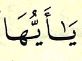 يَٰٓأَيُّهَا